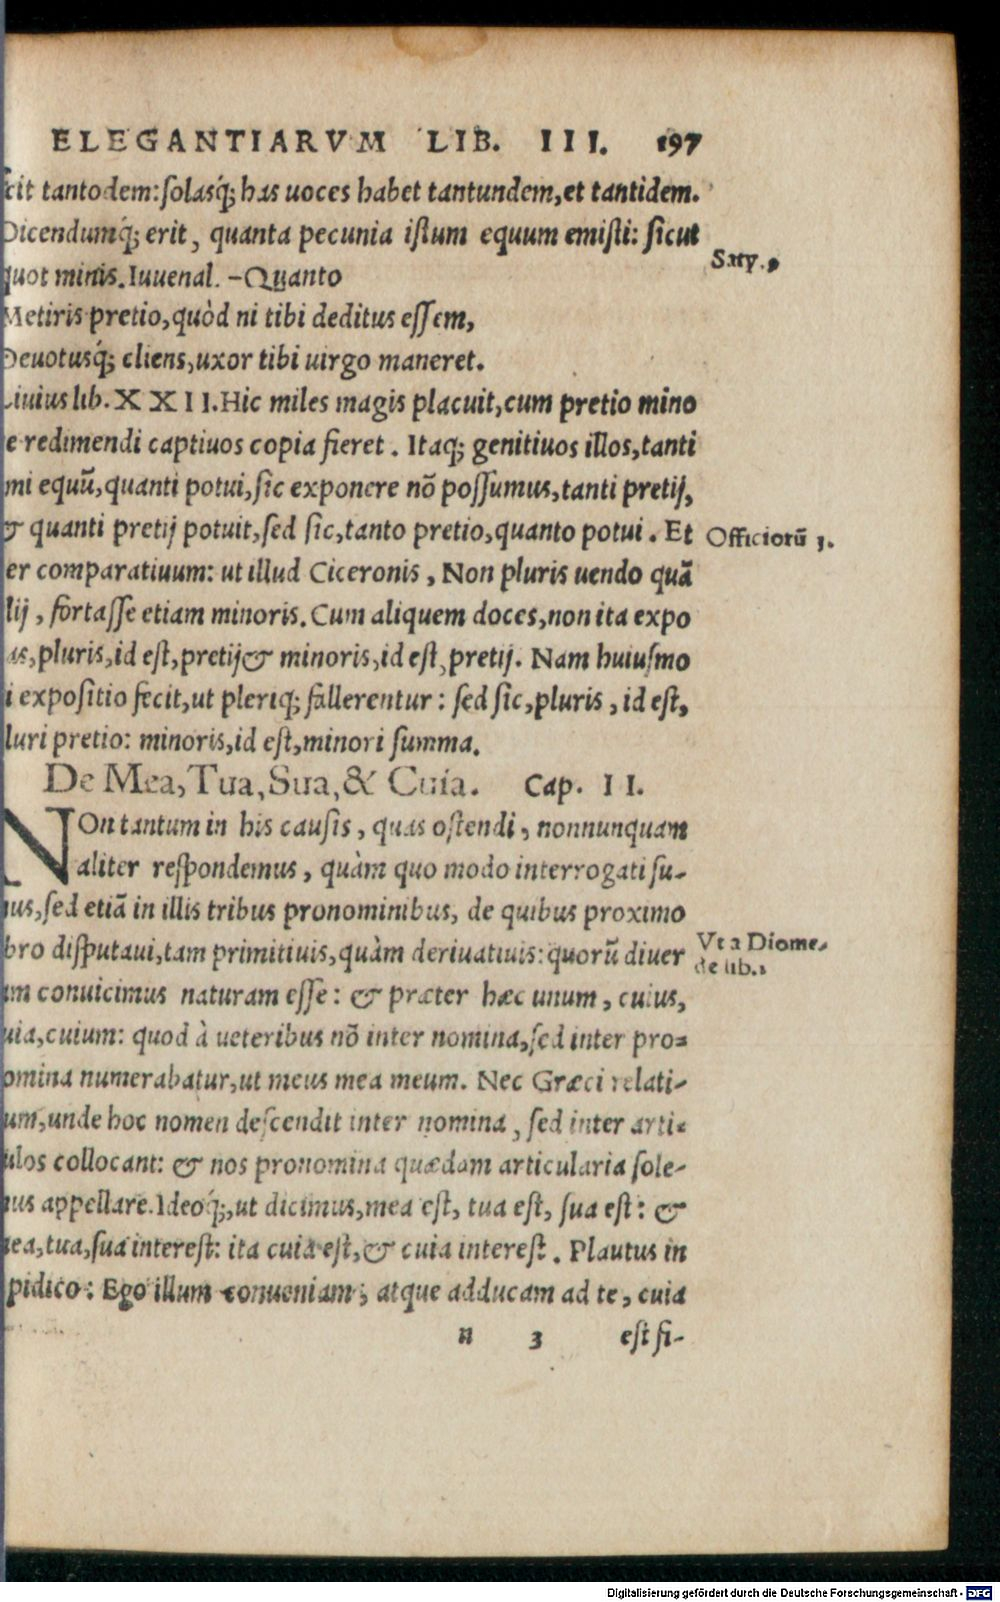 ELEGANTIARVM LIB. III. 197
cit tantodem: solasq́; has uoces habet tantundem, et tantidem.
Dicendumq́; erit, quanta pecunia istum equum emisti: sicut
quot minis. Iuuenal. –Quanto
Saty. 9
Metiris pretio, quòd ni tibi deditus essem,
Deuotusq́; cliens, uxor tibi uirgo maneret.
Liuius lib. XXII. Hic miles magis placuit, cum pretio mino
e redimendi captiuos copia fieret. Itaq; genitiuos illos, tanti
mi equũ, quanti potui, sic exponere nõ possumus, tanti pretij,
& quanti pretij potuit, sed sic, tanto pretio, quanto potui. Et
Officiorũ 3.
er comparatiuum: ut illud Ciceronis, Non pluris uendo quã
lij, fortasse etiam minoris. Cum aliquem doces, non ita expo
as, pluris, id est, pretij & minoris, id est, pretij. Nam huiusmo
i expositio fecit, ut pleriq; fallerentur: sed sic, pluris, id est,
luri pretio: minoris, id est, minori summa.
De Mea, Tua, Sua, & Cuia. Cap. II.
NOn tantum in his causis, quas ostendi, nonnunquam
aliter respondemus, quàm quo modo interrogati su-
mus, sed etiã in illis tribus pronominibus, de quibus proximo
bro disputaui, tam primitiuis, quàm deriuatiuis: quorũ diuer
Vt a Diome-
de lib. 1
am conuicimus naturam esse: & præter hæc unum, cuius,
uia, cuium: quod à ueteribus nõ inter nomina, sed inter pro-
omina numerabatur, ut meus mea meum. Nec Græci relati-
um, unde hoc nomen descendit inter nomina, sed inter arti-
ulos collocant: & nos pronomina quædam articularia sole-
mus appellare. Ideoq́;, ut dicimus, mea est, tua est, sua est: &
mea, tua, sua interest: ita cuia est, & cuia interest. Plautus in
pidico: Ego illum conueniam, atque adducam ad te, cuia
n 3 est fi-
Digitalisierung gefördert durch die Deutsche Forschungsgemeinschaft - DFG